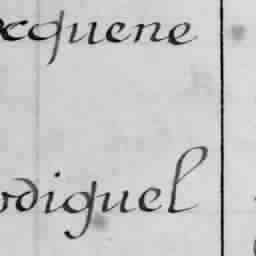 ocquene
odiguel